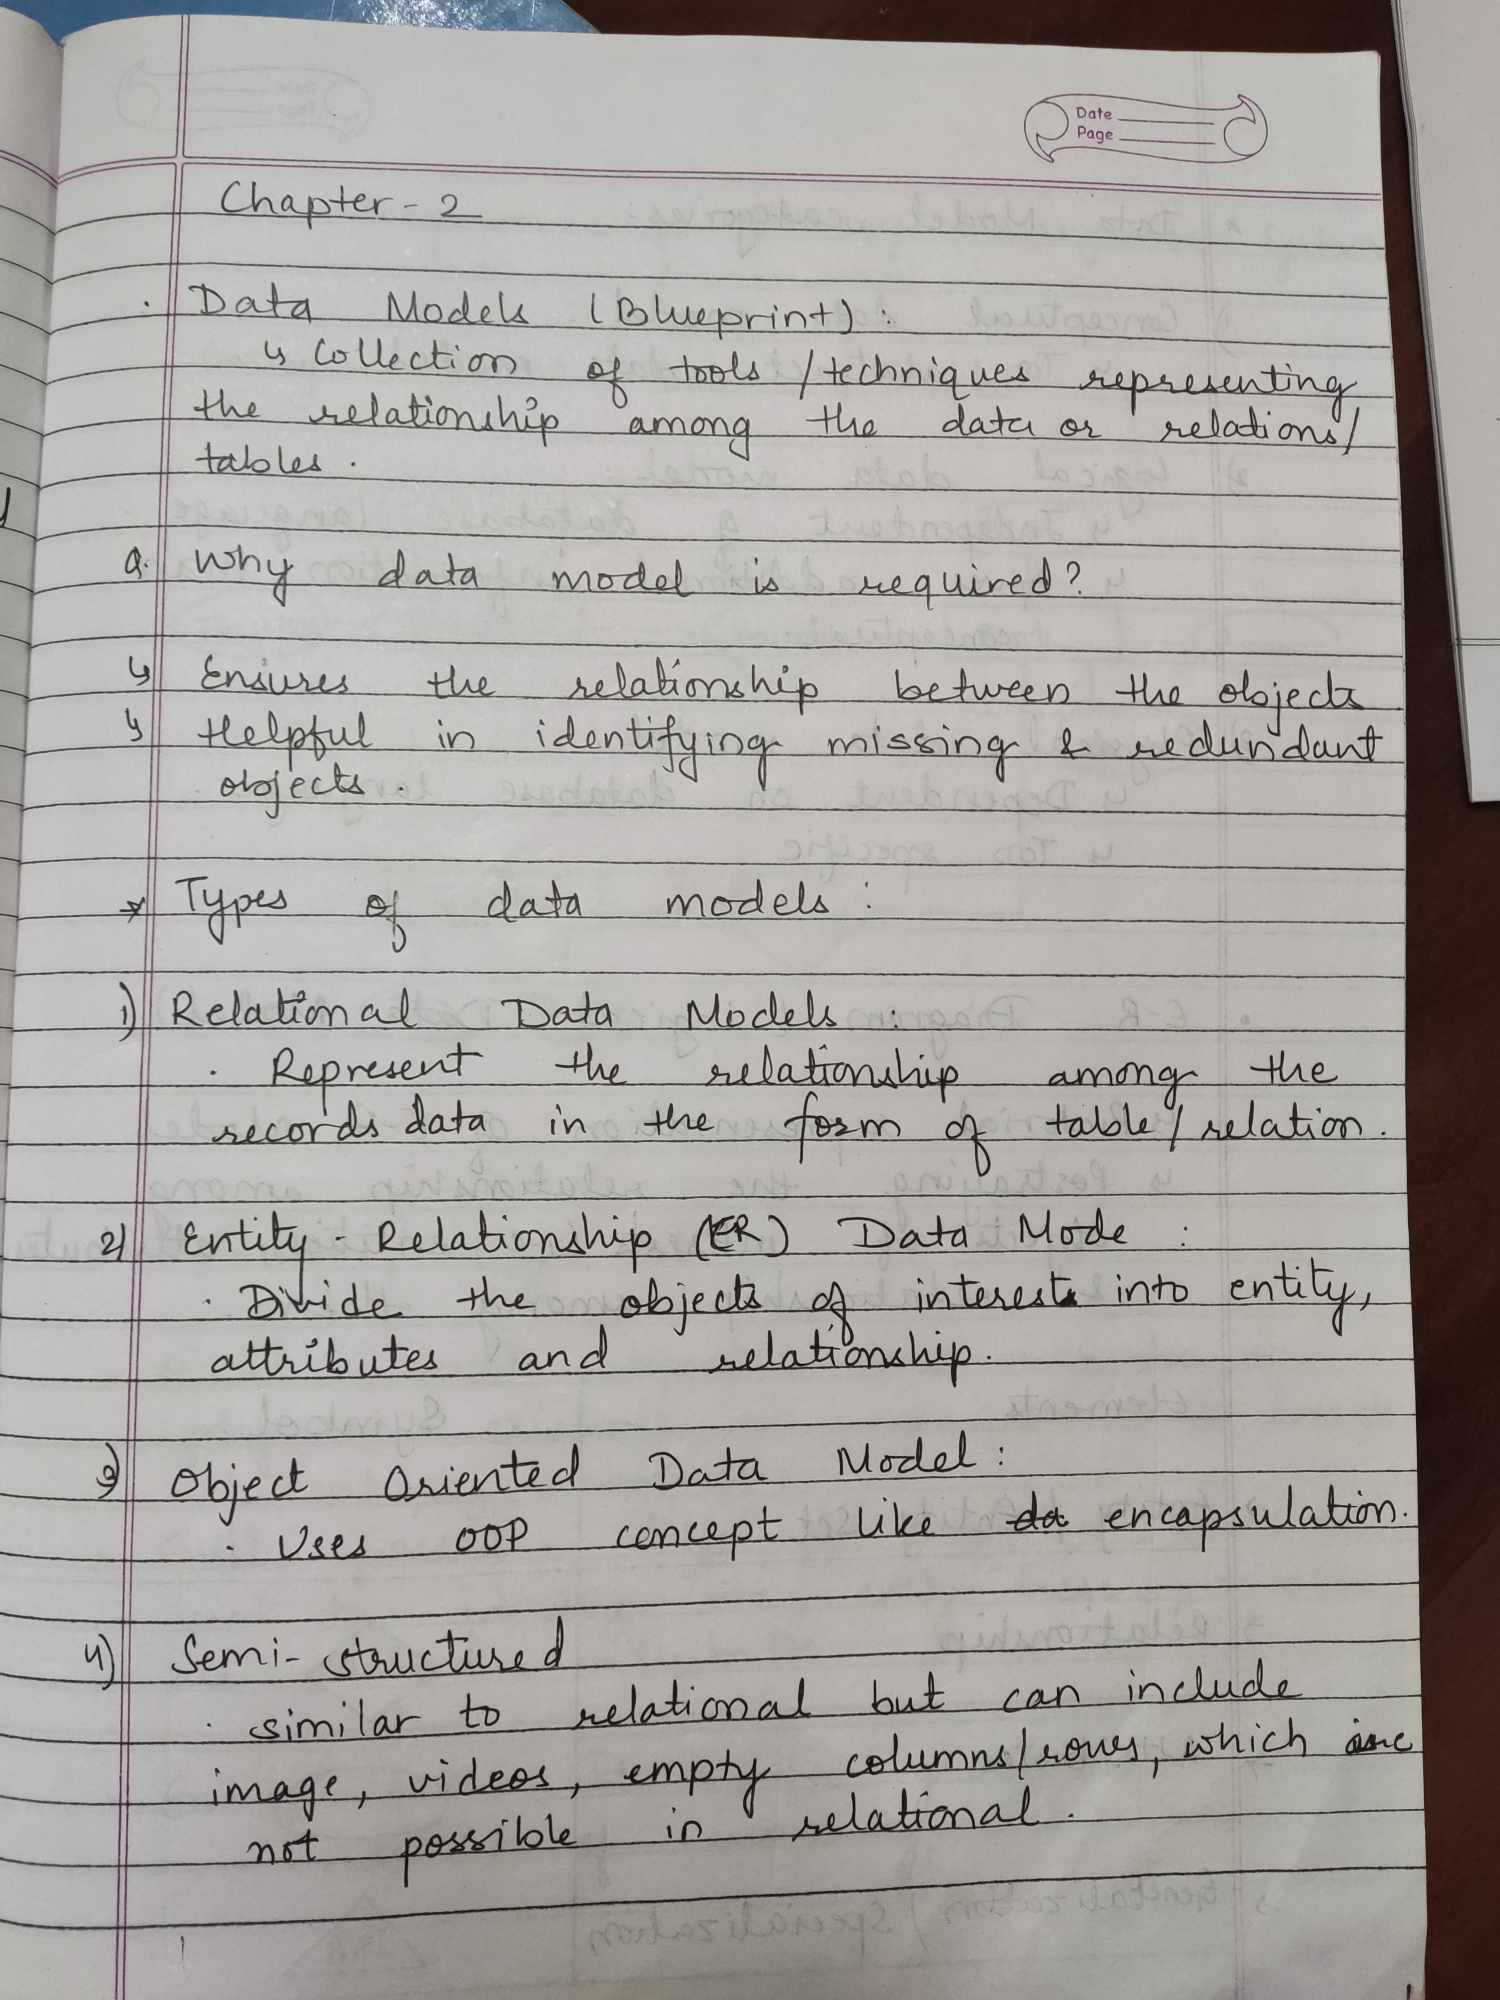 Date
Page
Chapter - 2
. Data Models (Blueprint) :
↳ Collection of tools / techniques representing
the relationship among the data or relations/
tables .
Q. Why data model is required?
↳ Ensures the relationship between the objects
↳ Helpful in identifying missing & redundant
objects .
* Types of data models :
1) Relational Data Models :
. Represent the relationship among the
records data in the form of table / relation .
2) Entity - Relationship (ER) Data Mode :
. Divide the objects of interest into entity,
attributes and relationship.
3) Object Oriented Data Model :
. Uses OOP concept like encapsulation.
4) Semi- structured
. similar to relational but can include
image, videos, empty columns/rows, which are
not possible in relational .